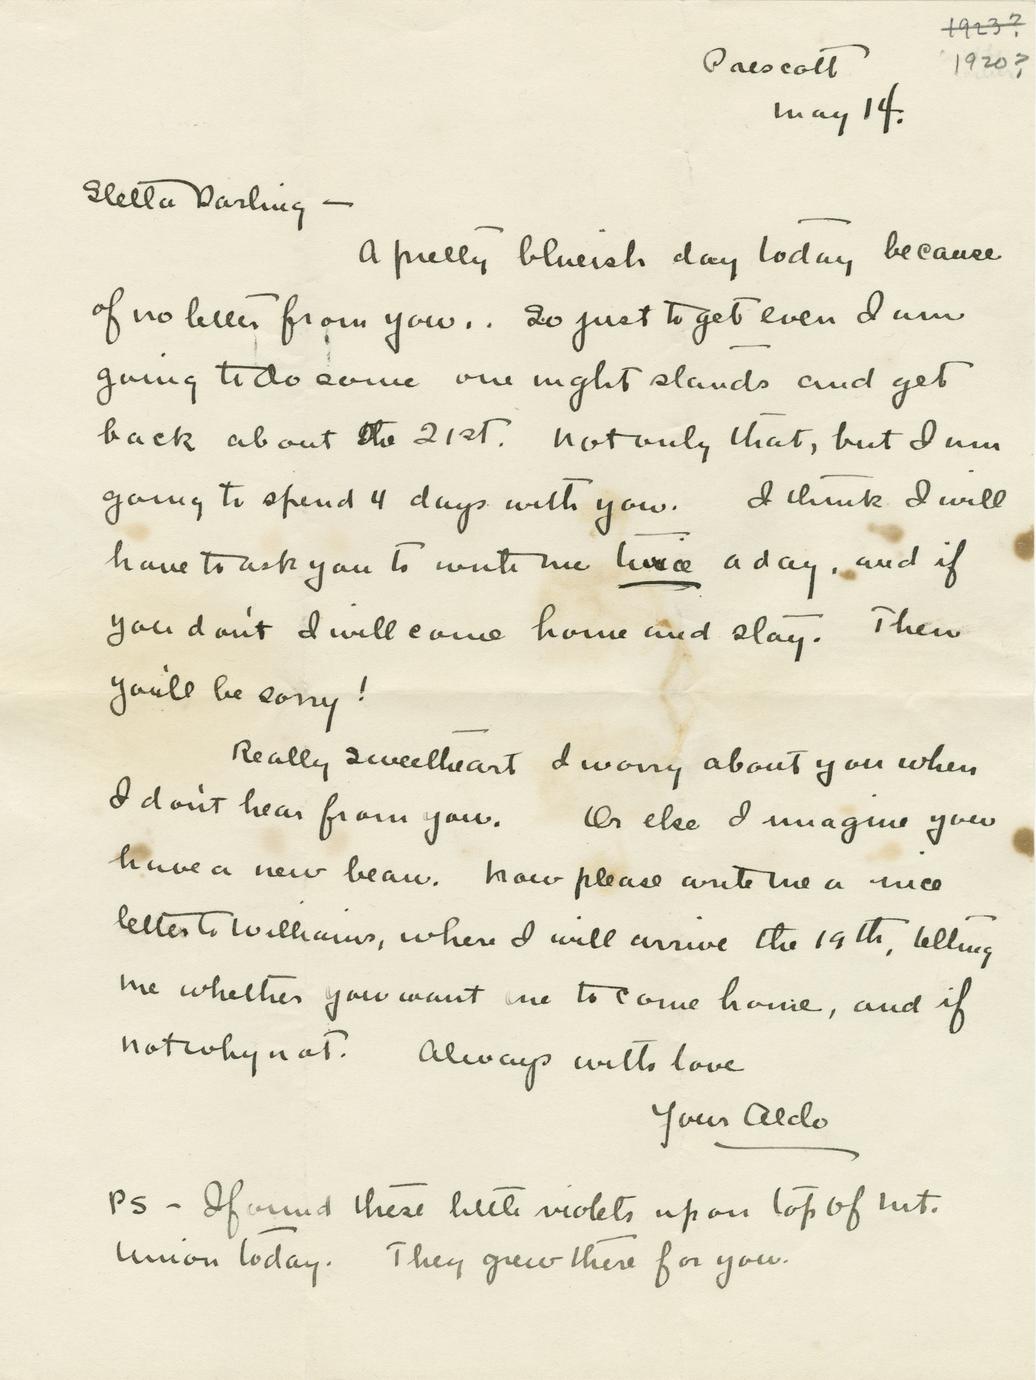 1923?
1920?
Prescott
May 14.
Stella Darling —
A pretty blueish day today because
of no letter from you.. So just to get even I am
going to do some one night stands and get
back about the 21st. Not only that, but I am
going to spend 4 days with you. I think I will
have to ask you to write me twice a day, and if
you don't I will come home and stay. Then
you'll be sorry!
Really sweetheart I worry about you when
I don't hear from you. Or else I imagine you
have a new beau. Now please write me a nice
letter to Williams, where I will arrive the 19th, telling
me whether you want me to come home, and if
not why not. Always with love
Your Aldo
PS – I found these little violets up on top of Mt.
Union today. They grew there for you.